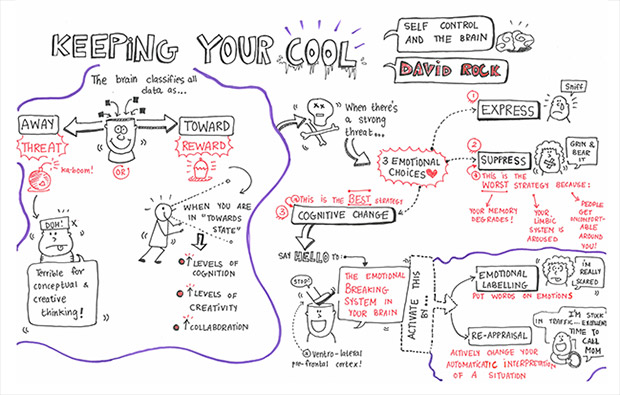 KEEPING YOUR COOL
SELF CONTROL
AND THE BRAIN
DAVID ROCK
The brain classifies all
data as...
AWAY
TOWARD
THREAT
REWARD
ka-boom!
OR
DOH!
Terrible for
conceptual &
creative
thinking!
WHEN YOU ARE
IN "TOWARDS
STATE"
↑ LEVELS OF
COGNITION
↑ LEVELS OF
CREATIVITY
↑ COLLABORATION
When there's
a strong
threat...
3 EMOTIONAL
CHOICES
1
EXPRESS
Sniff
2
SUPPRESS
GRIN &
BEAR
IT
THIS IS THE
WORST STRATEGY BECAUSE:
YOUR MEMORY
DEGRADES!
YOUR
LIMBIC
SYSTEM IS
AROUSED
PEOPLE
GET
UNCOMFORT-
ABLE
AROUND
YOU!
THIS IS THE BEST STRATEGY
3
COGNITIVE CHANGE
SAY HELLO TO:
STOP
THE EMOTIONAL
BREAKING
SYSTEM IN
YOUR BRAIN
VENTRO-LATERAL
pre-frontal cortex!
ACTIVATE THIS
BY...
EMOTIONAL
LABELLING
I'M
REALLY
SCARED
PUT WORDS ON EMOTIONS
RE-APPRAISAL
I'M STUCK
IN TRAFFIC-EXCELLENT
TIME TO
CALL
MOM
ACTIVELY CHANGE YOUR
AUTOMATICATIC INTERPRETATION
OF A SITUATION